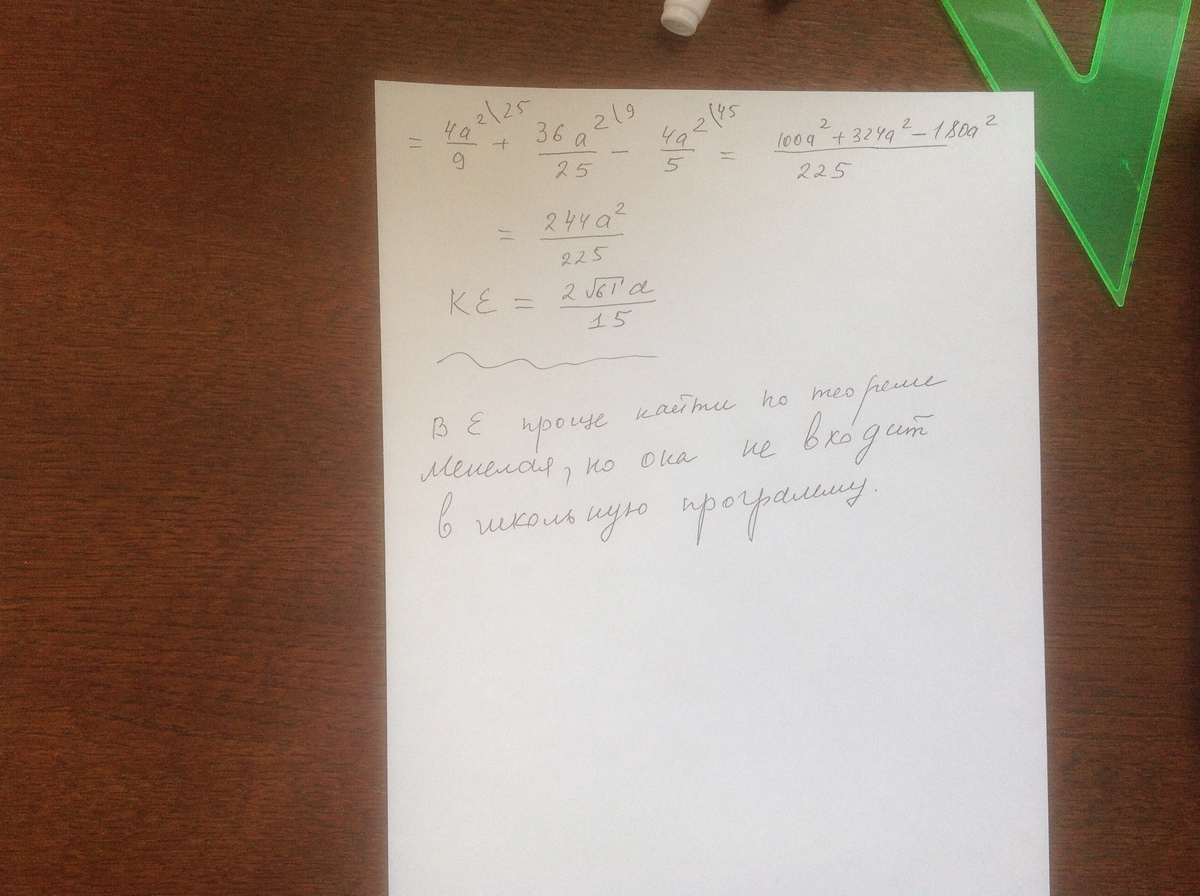 = 4a²\25/9 + 36a²\9/25 - 4a²\45/5 = 100a²+324a²-180a²/225
= 244a²/225
KE = 2√61 a/15
BE проще найти по теореме
Менелая, но она не входит
в школьную программу.